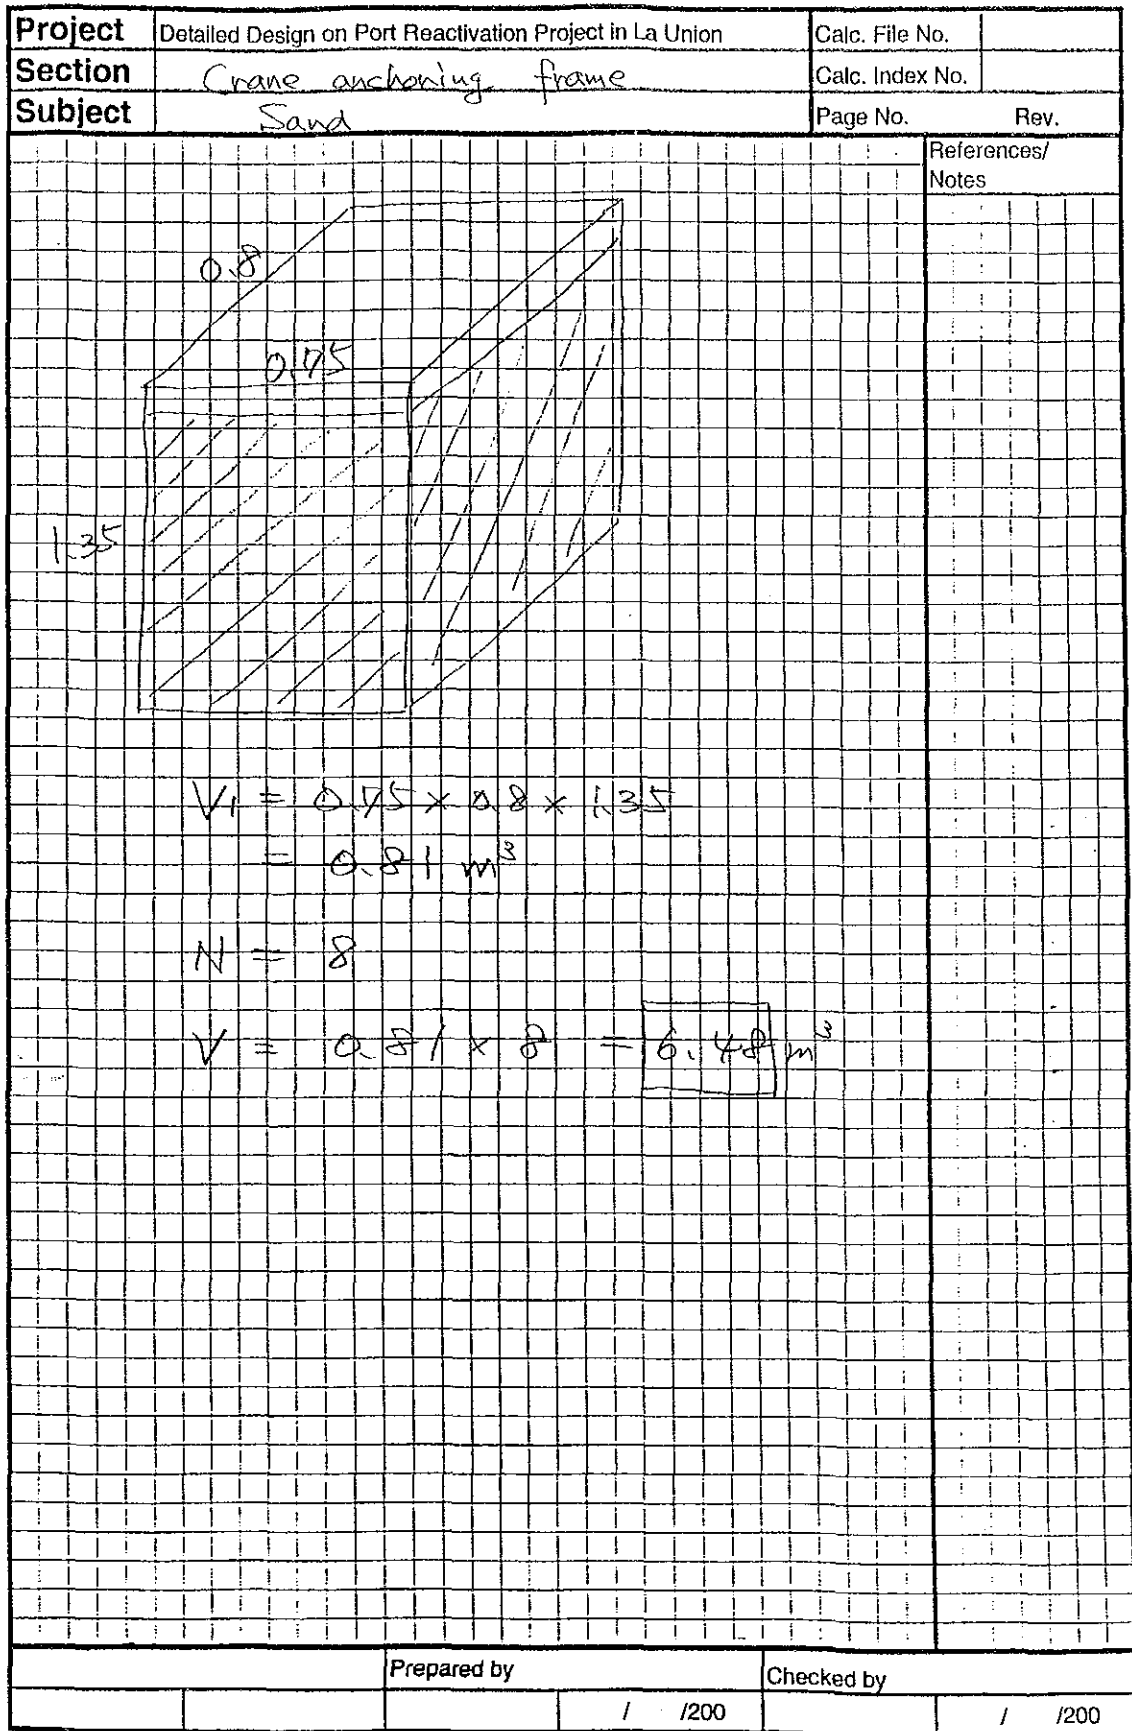 Project Detailed Design on Port Reactivation Project in La Union Calc. File No.
Section Crane anchoring frame Calc. Index No.
Subject Sand Page No. Rev.
References/
Notes
0.8
0.75
1.35
V1 = 0.75 × 0.8 × 1.35
= 0.81 m³
N = 8
V = 0.81 × 8 = 6.48 m³
Prepared by Checked by
/ /200 / /200